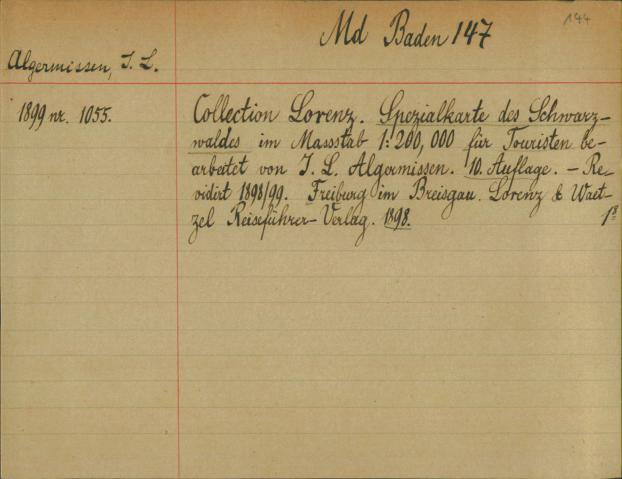 144
Md Baden 147
Algermissen, J. L.
1899 nr. 1055.
Collection Lorenz. Spezialkarte des Schwarz-
waldes im Massstab 1:200,000 für Touristen be-
arbeitet von J. L. Algermissen. 10. Auflage. – Re-
vidirt 1898/99. Freiburg im Breisgau. Lorenz & Waet-
zel Reiseführer-Verlag. 1898.